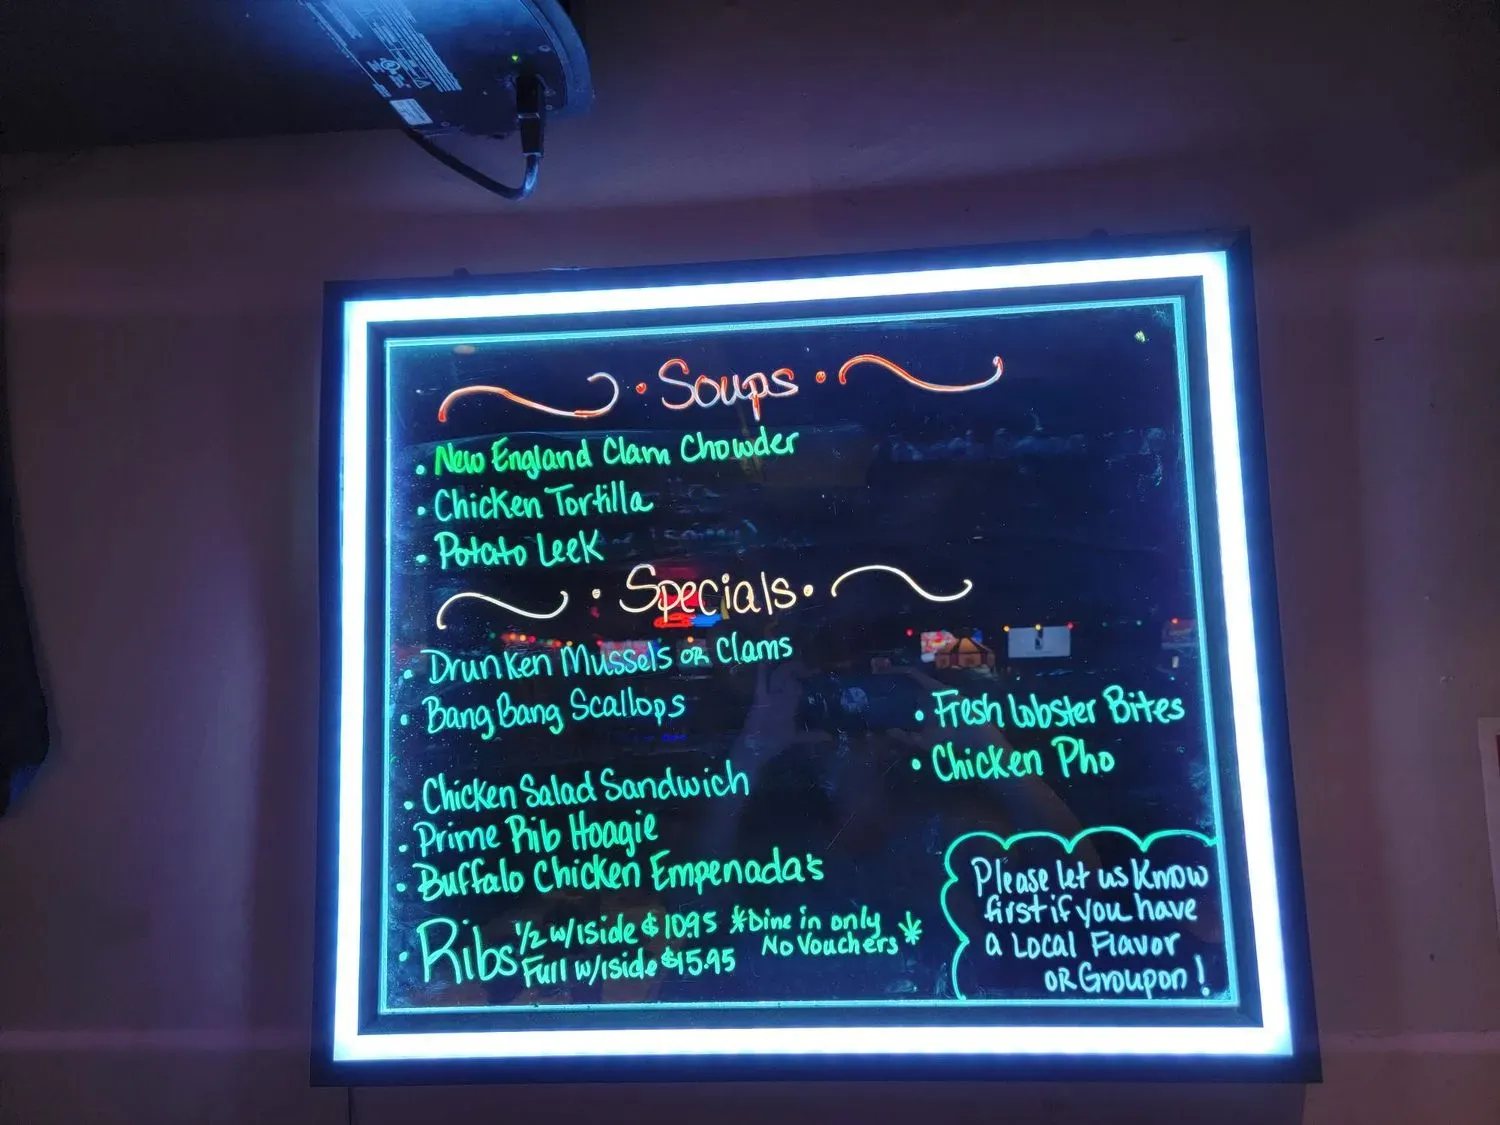 Soups
• New England Clam Chowder
• Chicken Tortilla
• Potato Leek
Specials
• Drunken Mussels or Clams
• Bang Bang Scallops
• Chicken Salad Sandwich
• Prime Rib Hoagie
• Buffalo Chicken Empenada's
• Ribs 1/2 w/1side $10.95 *Dine in only
Full w/1side $15.95 No Vouchers *
• Fresh Lobster Bites
• Chicken Pho
Please let us Know
first if you have
a Local Flavor
or Groupon!